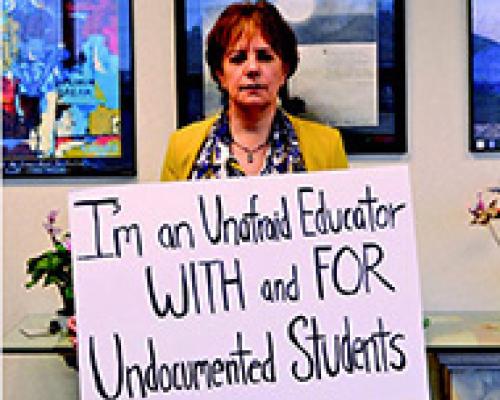 I'm an Unafraid Educator
WITH and FOR
Undocumented Students